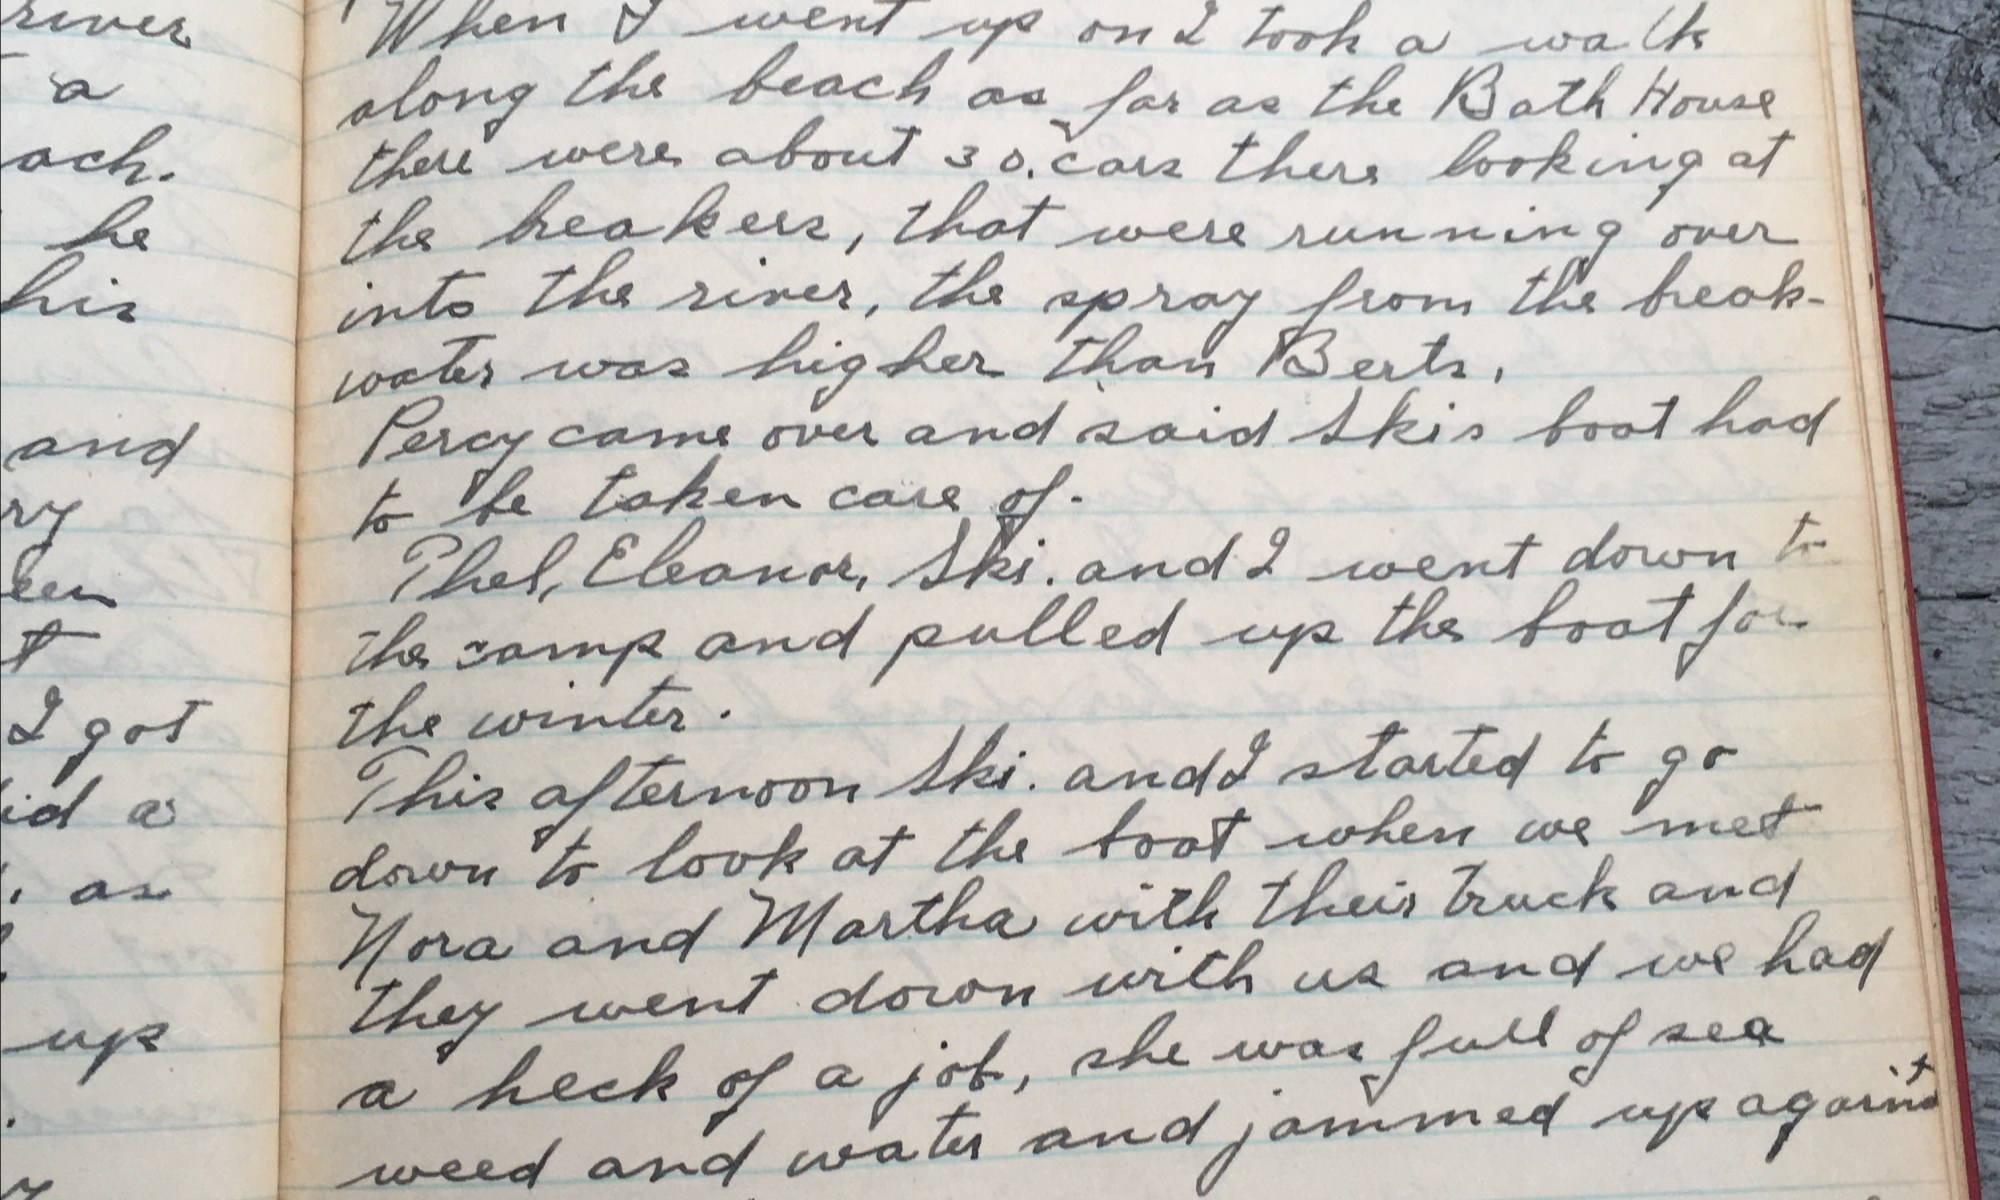 river
a
ach.
he
his
and
ry
een
t
I got
id a
, as
up
When I went up on I took a walk
along the beach as far as the Bath House
there were about 30. cars there looking at
the breakers, that were running over
into the river, the spray from the break-
water was higher than Berts.
Percy came over and said Skis boat had
to be taken care of.
Phel, Eleanor, Ski. and I went down to
the camp and pulled up the boat for
the winter.
This afternoon Ski. and I started to go
down to look at the boat when we met
Nora and Martha with their truck and
they went down with us and we had
a heck of a job, she was full of sea
weed and water and jammed up against